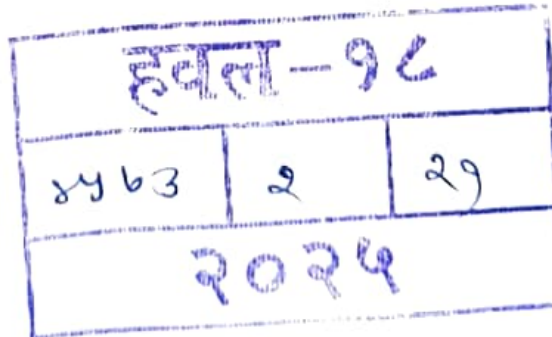 हवल-१८
४५७३ २ २१
२०२५